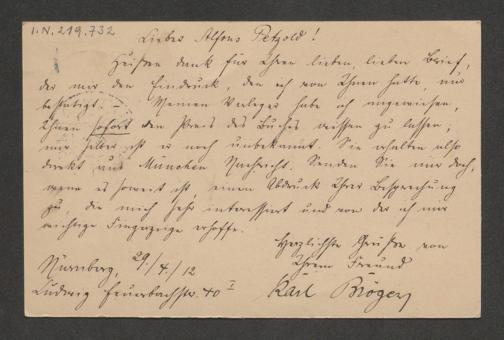 I.N. 219.732
Lieber Alfons Petzold!
Heißen Dank für Ihren lieben, lieben Brief,
der mir den Eindruck, den ich von Ihnen hatte, nur
bestätigt. – Meinen Verleger habe ich angewiesen,
Ihnen sofort den Preis des Buches wissen zu lassen;
mir selber ist es noch unbekannt. Sie erhalten also
direkt aus München Nachricht. Senden Sie mir doch,
wenn es soweit ist, einen Abdruck Ihrer Besprechung
zu, die mich sehr interessiert und von der ich mir
wichtige Fingerzeige erhoffe.
Herzlichste Grüße von
Ihrem Freund
Karl Bröger
Nürnberg, 29./4./12
Ludwig Feuerbachstr. 40 I